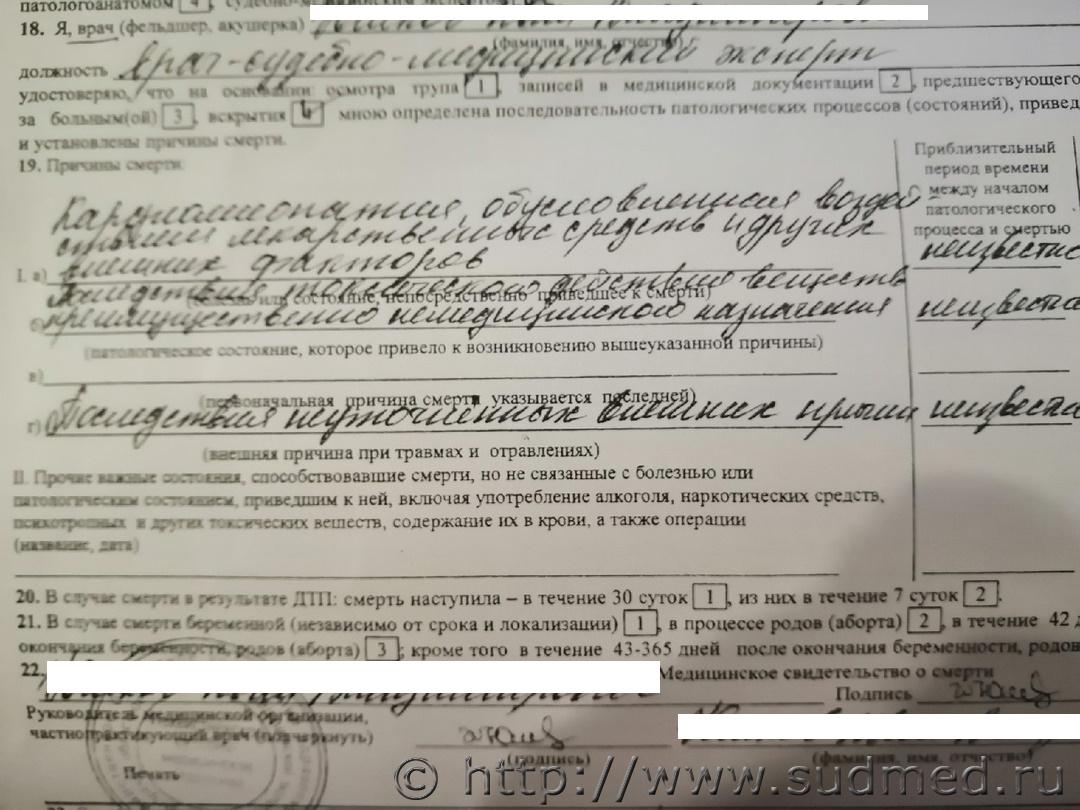 патологоанатомом 4, судебно-медицинским экспертом
18. Я, врач (фельдшер, акушерка)
(фамилия, имя, отчество)
должность врач-судебно-медицинский эксперт
удостоверяю, что на основании: осмотра трупа 1, записей в медицинской документации 2, предшествующего
за больным(ой) 3, вскрытия 4 мною определена последовательность патологических процессов (состояний), привед
и установлены причины смерти.
19. Причины смерти:
Приблизительный
период времени
между началом
патологического
процесса и смертью
Кардиомиопатия, обусловленная воздей
ствием лекарственных средств и других
I. а) внешних факторов неизвестно
(болезнь или состояние, непосредственно приведшее к смерти)
Последствия токсического действия веществ
б) преимущественно немедицинского назначения неизвестно
(патологическое состояние, которое привело к возникновению вышеуказанной причины)
в)
(первоначальная причина смерти указывается последней)
г) Последствия неуточненных внешних причин неизвестно
(внешняя причина при травмах и отравлениях)
II. Прочие важные состояния, способствовавшие смерти, но не связанные с болезнью или
патологическим состоянием, приведшим к ней, включая употребление алкоголя, наркотических средств,
психотропных и других токсических веществ, содержание их в крови, а также операции
(название, дата)
20. В случае смерти в результате ДТП: смерть наступила – в течение 30 суток 1, из них в течение 7 суток 2.
21. В случае смерти беременной (независимо от срока и локализации) 1, в процессе родов (аборта) 2, в течение 42 д
окончания беременности, родов (аборта) 3; кроме того в течение 43-365 дней после окончания беременности, родов
22. Медицинское свидетельство о смерти
Подпись
Руководитель медицинской организации,
частнопрактикующий врач (подчеркнуть)
(подпись) (фамилия, имя, отчество)
Печать
© http://www.sudmed.ru